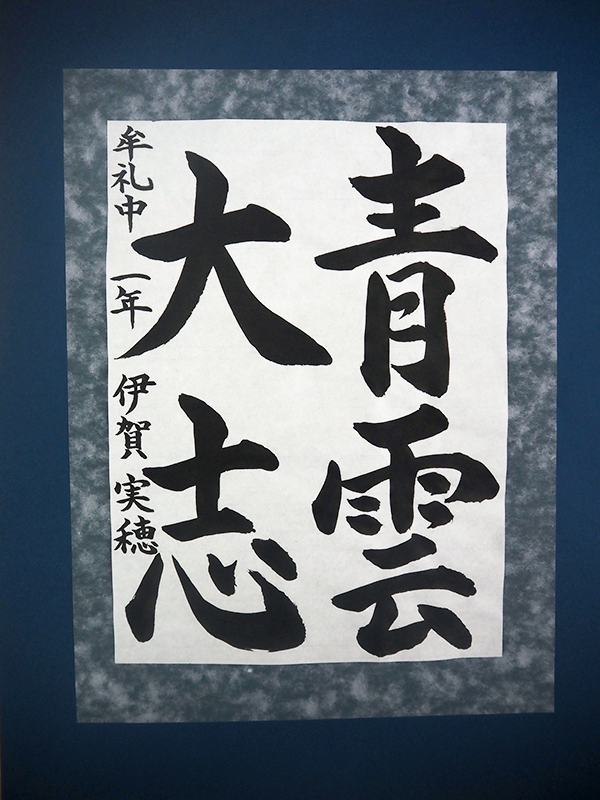 青雲
大志
牟礼中 一年 伊賀実穂